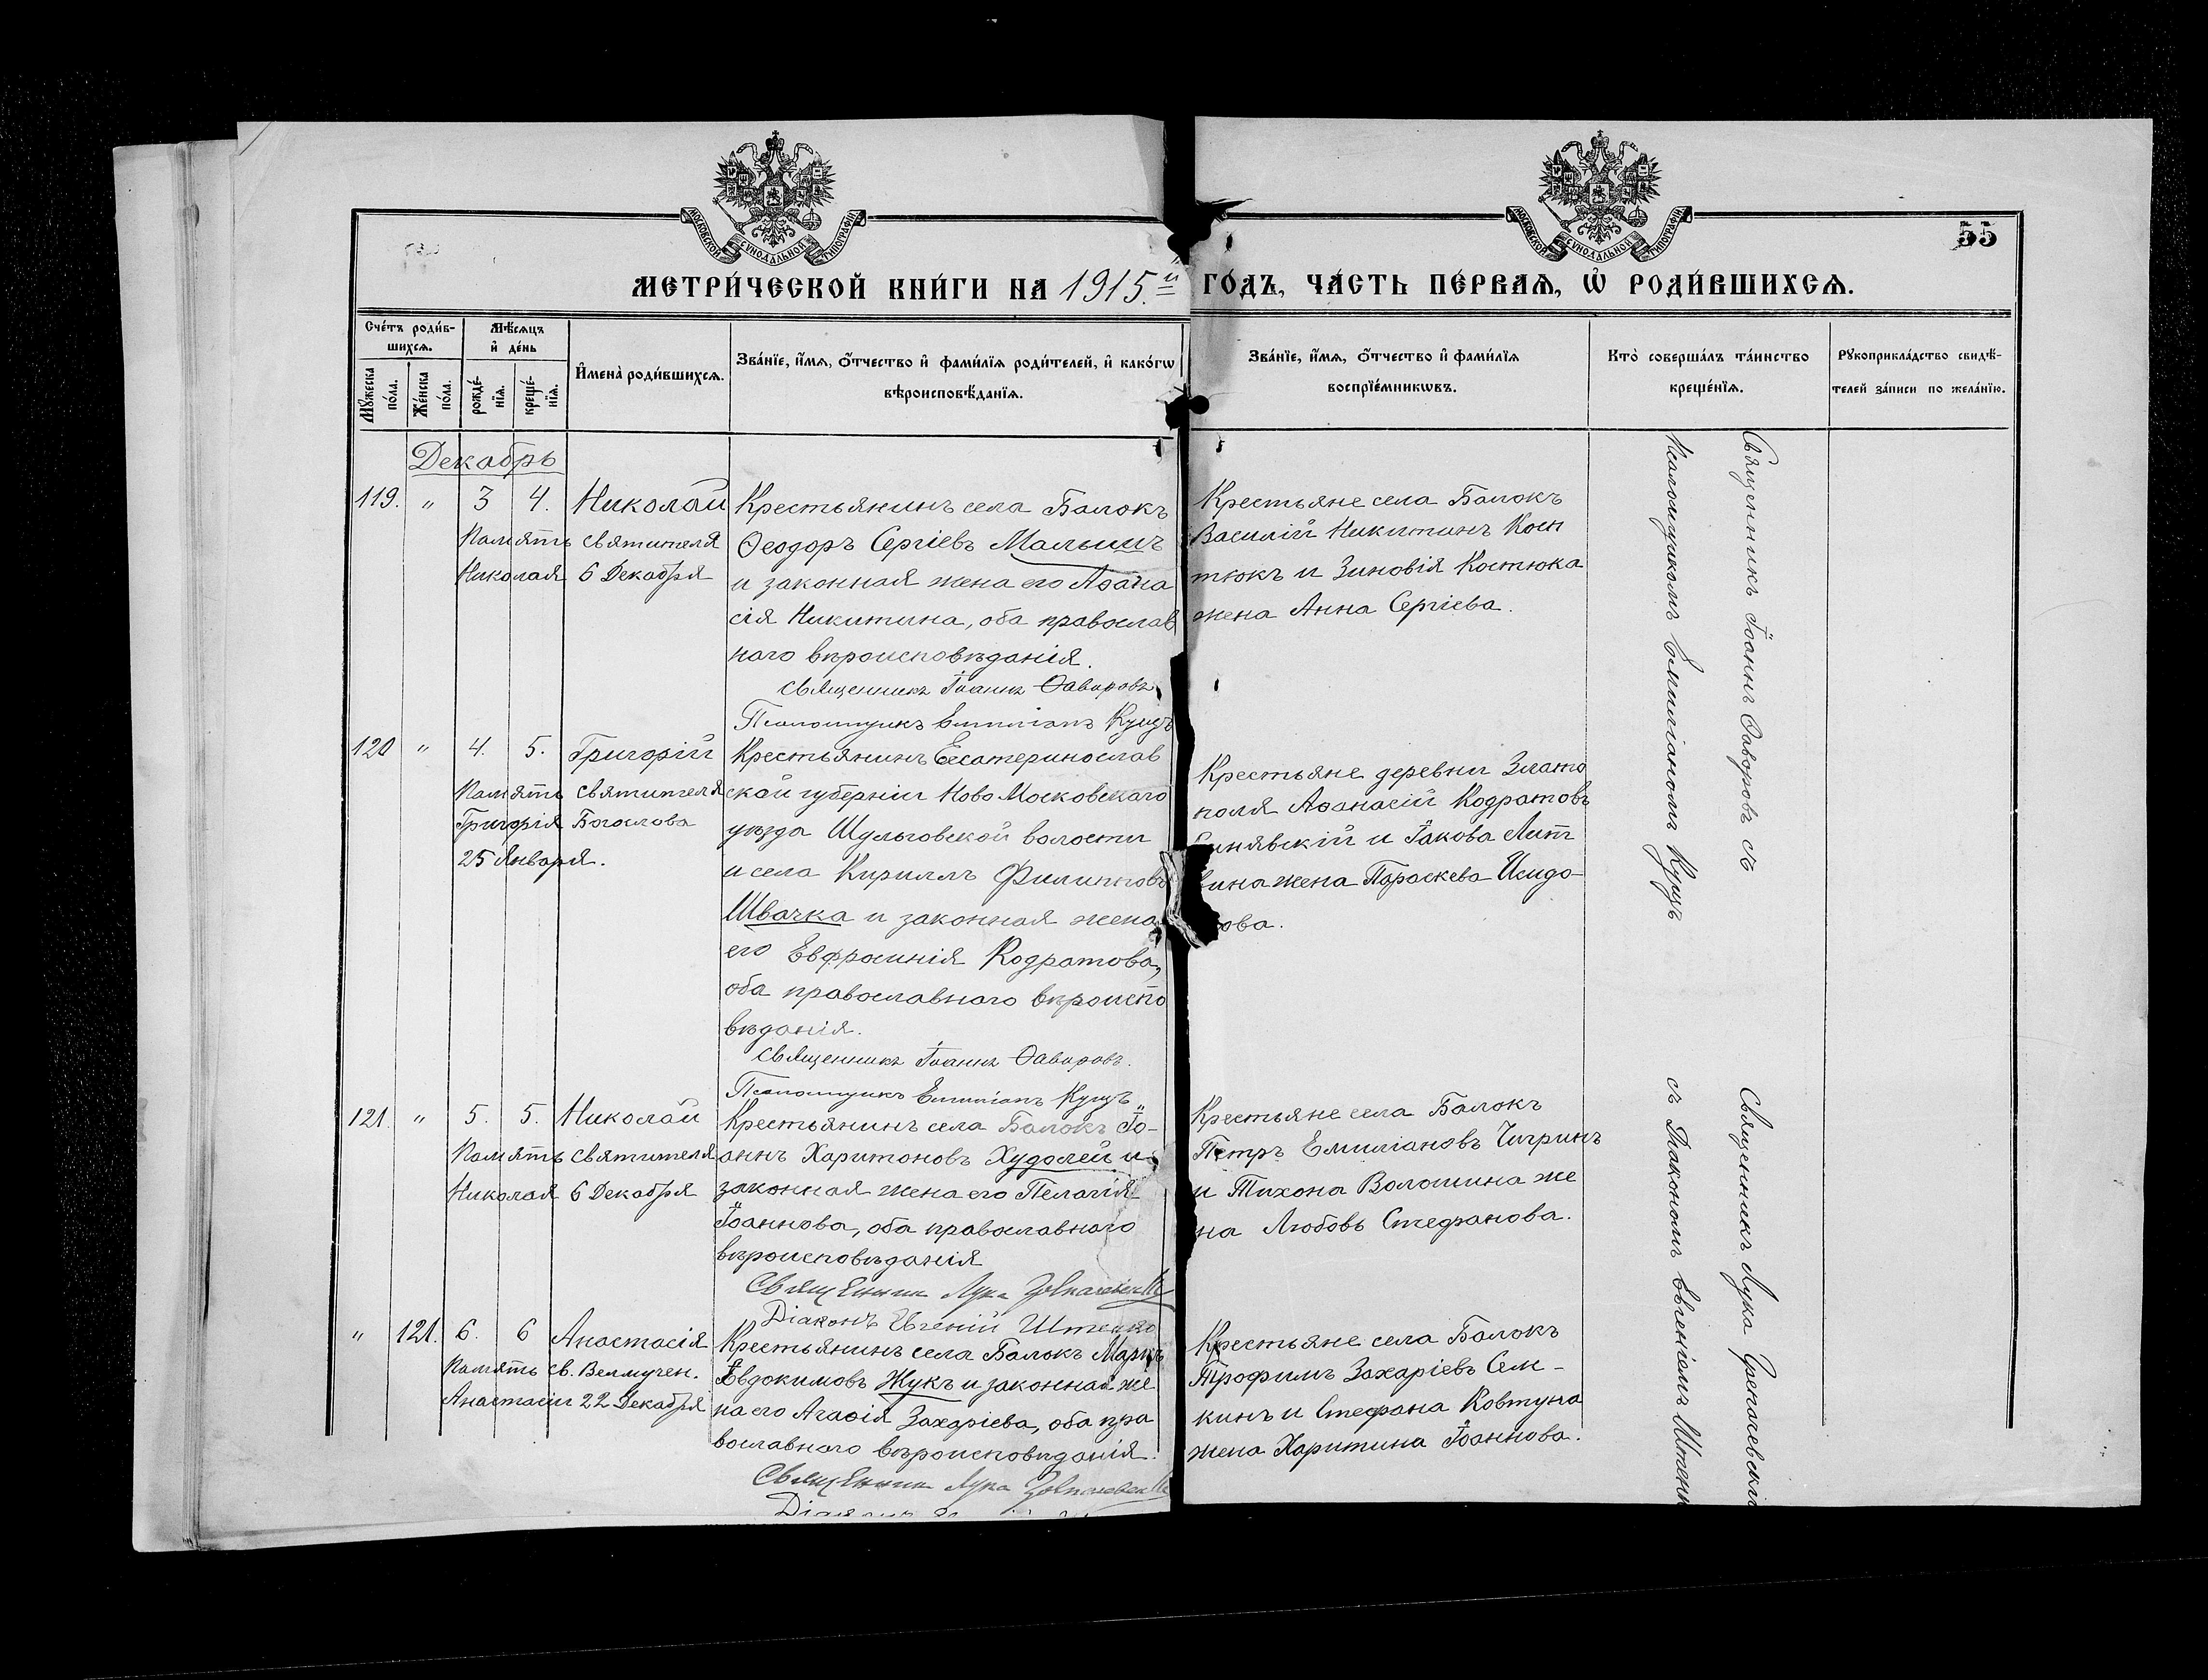 МОСКОВСКОЙ СѴНОДАЛЬНОЙ ТИПОГРАФІИ
МОСКОВСКОЙ СѴНОДАЛЬНОЙ ТИПОГРАФІИ
55
МЕТРИ́ЧЕСКОЙ КНИ́ГИ НА 1915.й ГО́ДЪ, ЧА́СТЬ ПЕ́РВАѦ, Ѡ҆ РОДИ́ВШИХСѦ.
Сче́тъ роди́в-
шихсѧ.
Мѣ́сѧцъ
и҆ де́нь
Мꙋ́жеска по́ла.
Же́нска по́ла.
рожде́-
нїѧ.
креще́-
нїѧ.
И҆мена̀ роди́вшихсѧ.
Зва́нїе, и҆́мѧ, ѻ҆́тчество и҆ фами́лїѧ роди́телей, и҆ како́гѡ
вѣроисповѣ́данїѧ.
Зва́нїе, и҆́мѧ, ѻ҆́тчество и҆ фами́лїѧ
воспрїе́мникѡвъ.
Кто̀ соверша́лъ та́инство
креще́нїѧ.
Рꙋкоприкла́дство свидѣ́-
телей за́писи по жела́нїю.
Декабрь
119. " 3 4. Николай
Память святителя
Николая 6 Декабря
Крестьянинъ села Балокъ
Ѳеодоръ Сергіевъ Малышъ
и законная жена его Аѳана
сія Никитина, оба православ
наго вѣроисповѣданія.
Священникъ Іоаннъ Ѳаворовъ
Псаломщикъ Емиліанъ Кущъ
Крестьяне села Балокъ
Василій Никитинъ Кос
тюкъ и Зиновія Костюка
жена Анна Сергіева.
120 " 4. 5. Григорій
Память святителя
Григорія Богослова
25 Января.
Крестьянинъ Екатеринослав
ской губерніи Ново Московскаго
уѣзда Шульговской волости
и села Кириллъ Филипповъ
Швачка и законная жена
его Евфросинія Кодратова,
оба православнаго вѣроиспо
вѣданія.
Священникъ Іоаннъ Ѳаворовъ.
Псаломщикъ Емиліанъ Кущъ
Крестьяне деревни Злато
поля Аѳанасій Кодратовъ
Синявскій и Іакова Лит
вина жена Параскева Исидо-
рова.
Священникъ Іоаннъ Ѳаворовъ съ
Псаломщикомъ Емиліаномъ Кущъ
121. " 5. 5. Николай
Память святителя
Николая 6 Декабря
Крестьянинъ села Балокъ Іо-
аннъ Харитоновъ Худолей и
законная жена его Пелагія
Іоаннова, оба православнаго
вѣроисповѣданія
Священник Лука
Діаконъ Евгеній Штенко
Крестьяне села Балокъ
Петръ Емиліановъ Чигринъ
и Тихона Волошина же
на Любовь Стефанова.
" 121. 6. 6 Анастасія
Память св. Велмучен.
Анастасіи 22 Декабря
Крестьянинъ села Балокъ Маркъ
Евдокимовъ Жукъ и законная же
на его Агаѳія Захаріева, оба пра
вославнаго вѣроисповѣданія.
Священник Лука
Крестьяне села Балокъ
Трофимъ Захаріевъ Сем-
кинъ и Стефана Ковтуна
жена Харитина Іоаннова.
Священникъ Лука
съ Діакономъ Евгеніемъ